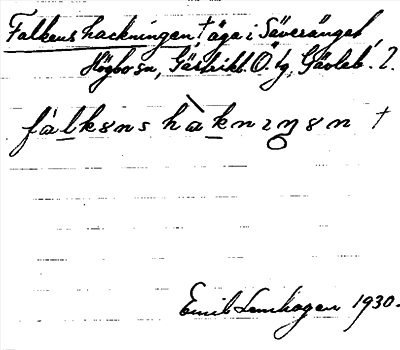 Falkens hackningen, † äga i Säveränget,
Högbo sn, Gästrikl. Ö. tg, Gävleb. l.
fálkəns hàknıŋən †
Emil Lenhagen 1930.